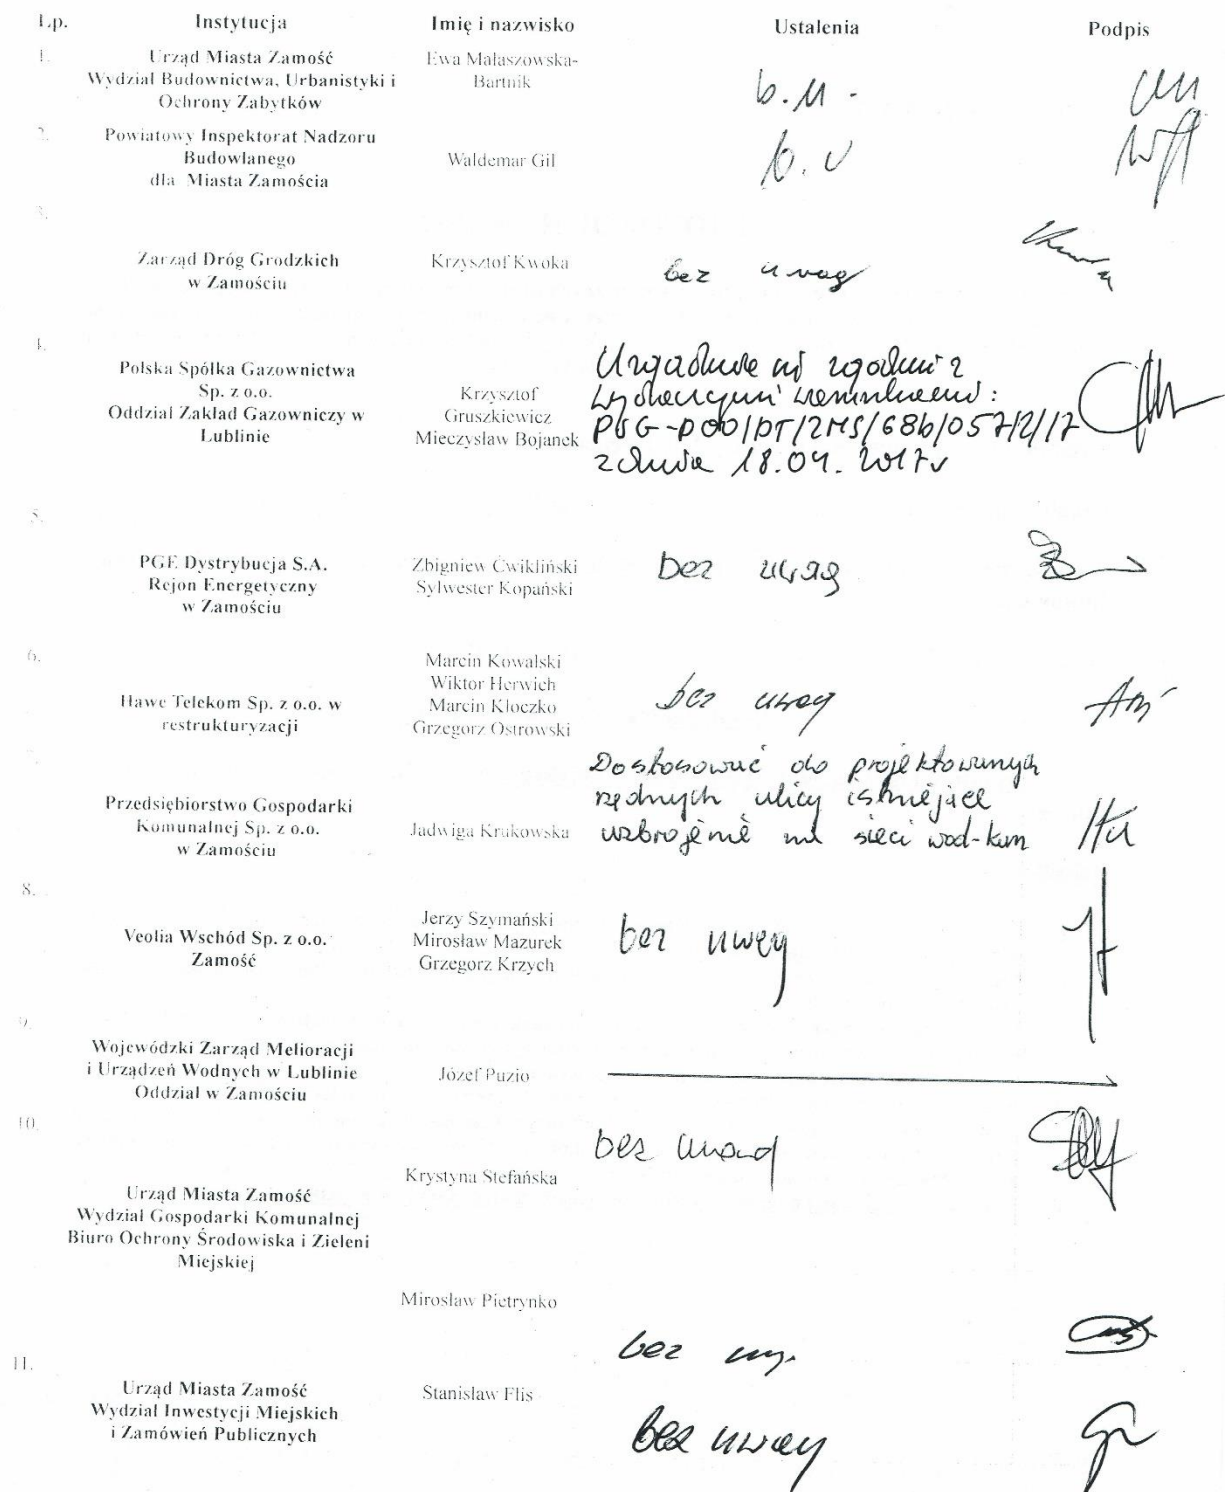 Lp. Instytucja Imię i nazwisko Ustalenia Podpis
1. Urząd Miasta Zamość
Wydział Budownictwa, Urbanistyki i
Ochrony Zabytków
Ewa Małaszowska-
Bartnik
b.u.
2. Powiatowy Inspektorat Nadzoru
Budowlanego
dla Miasta Zamościa
Waldemar Gil
b.u
3.
Zarząd Dróg Grodzkich
w Zamościu
Krzysztof Kwoka
bez uwag
4.
Polska Spółka Gazownictwa
Sp. z o.o.
Oddział Zakład Gazowniczy w
Lublinie
Krzysztof
Gruszkiewicz
Mieczysław Bojanek
Uzgadnia się zgodnie z
wydanymi warunkami:
z dnia 18.04.2017r
5.
PGE Dystrybucja S.A.
Rejon Energetyczny
w Zamościu
Zbigniew Ćwikliński
Sylwester Kopański
bez uwag
6.
Hawe Telekom Sp. z o.o. w
restrukturyzacji
Marcin Kowalski
Wiktor Herwich
Marcin Kłoczko
Grzegorz Ostrowski
bez uwag
7.
Przedsiębiorstwo Gospodarki
Komunalnej Sp. z o.o.
w Zamościu
Jadwiga Krukowska
Dostosować do projektowanych
rzędnych ulicy istniejące
uzbrojenie na sieci wod-kan
8.
Veolia Wschód Sp. z o.o.
Zamość
Jerzy Szymański
Mirosław Mazurek
Grzegorz Krzych
bez uwag
9.
Wojewódzki Zarząd Melioracji
i Urządzeń Wodnych w Lublinie
Oddział w Zamościu
Józef Puzio
10.
Urząd Miasta Zamość
Wydział Gospodarki Komunalnej
Biuro Ochrony Środowiska i Zieleni
Miejskiej
Krystyna Stefańska
bez uwag
Mirosław Pietrynko
bez
11.
Urząd Miasta Zamość
Wydział Inwestycji Miejskich
i Zamówień Publicznych
Stanisław Flis
bez uwag